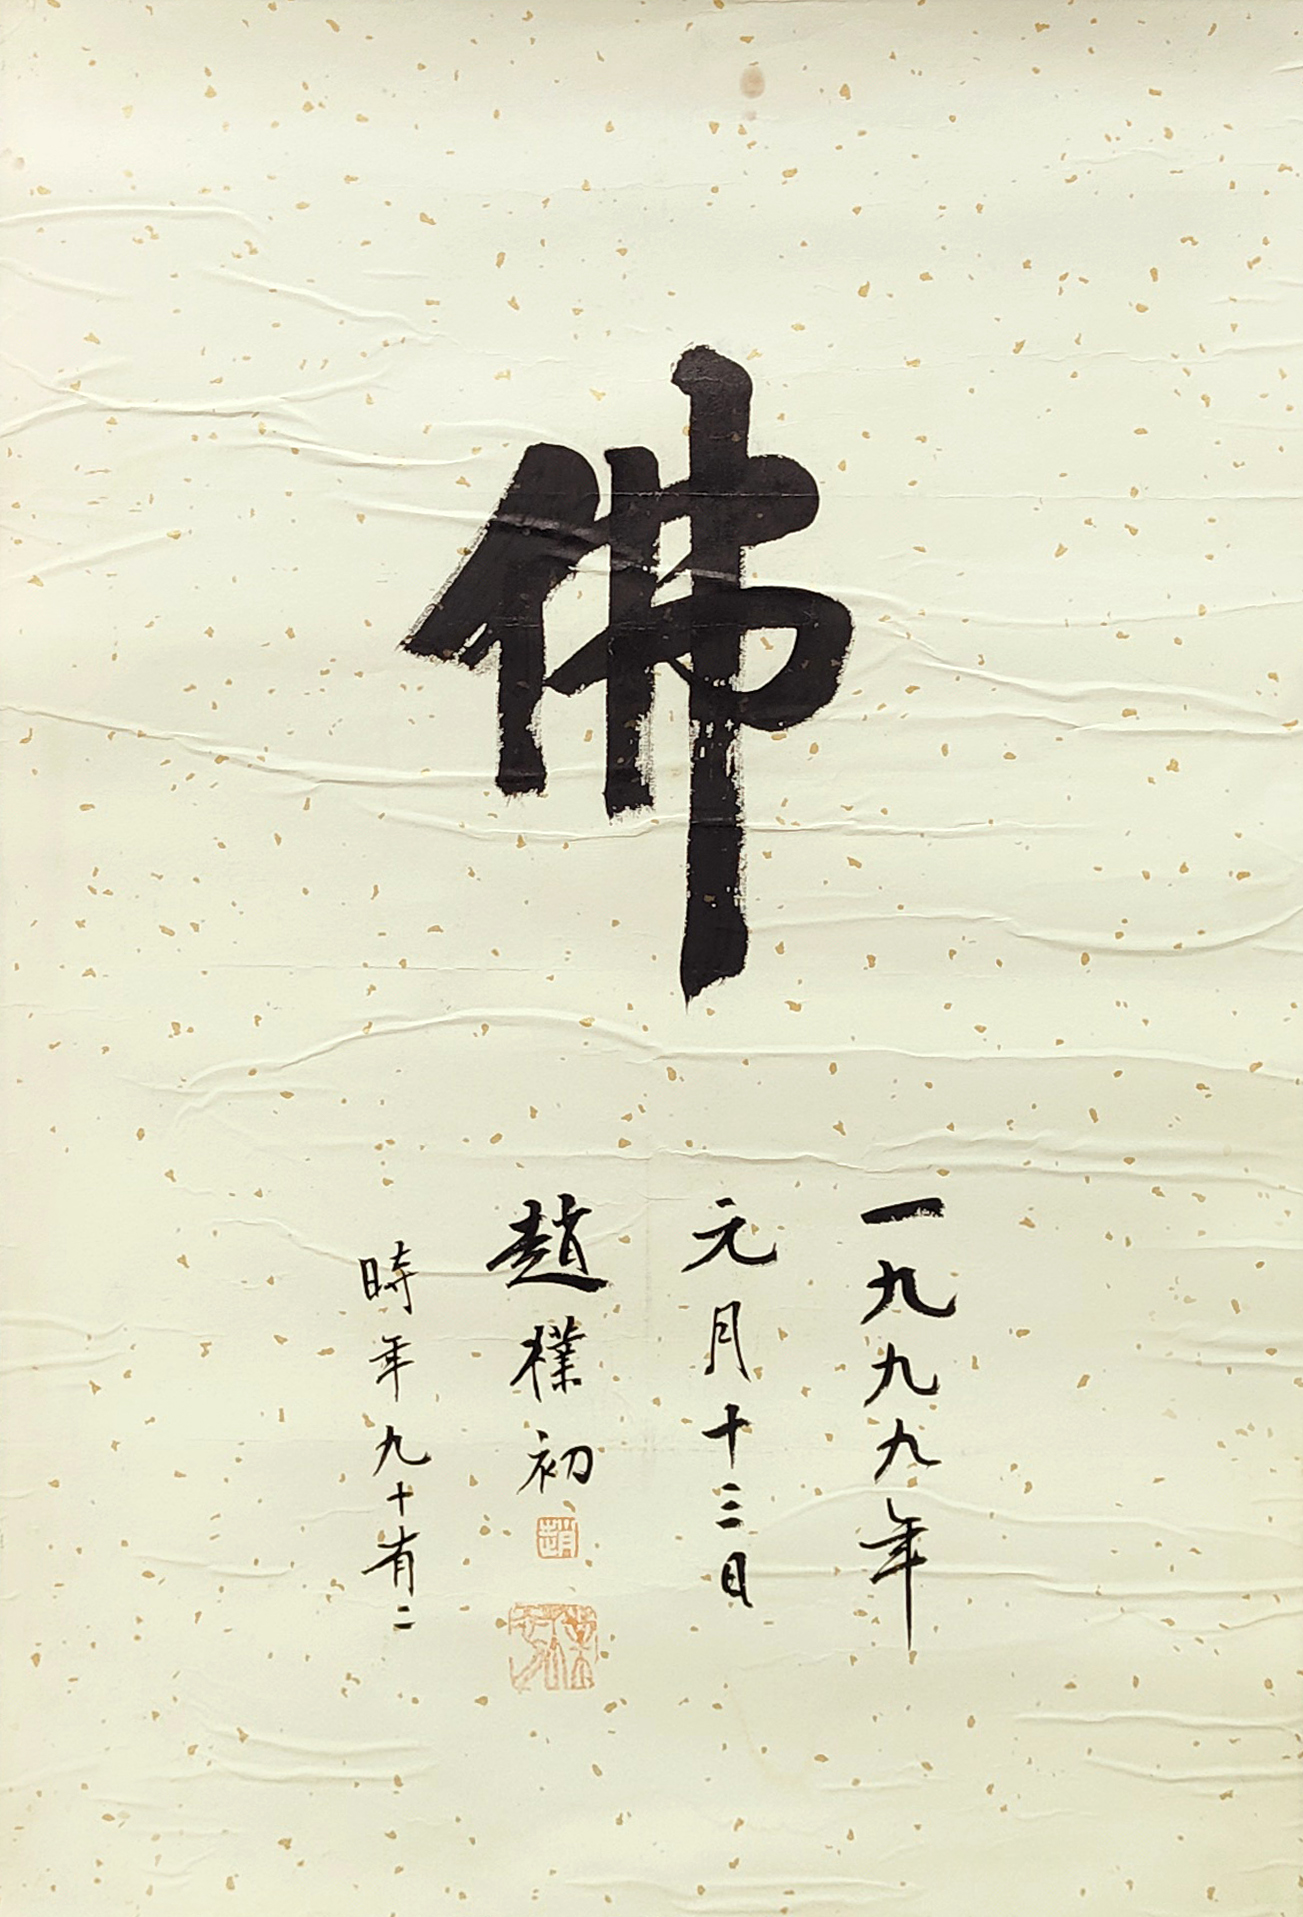 佛
一九九九年
元月十三日
趙樸初
趙
時年九十有二